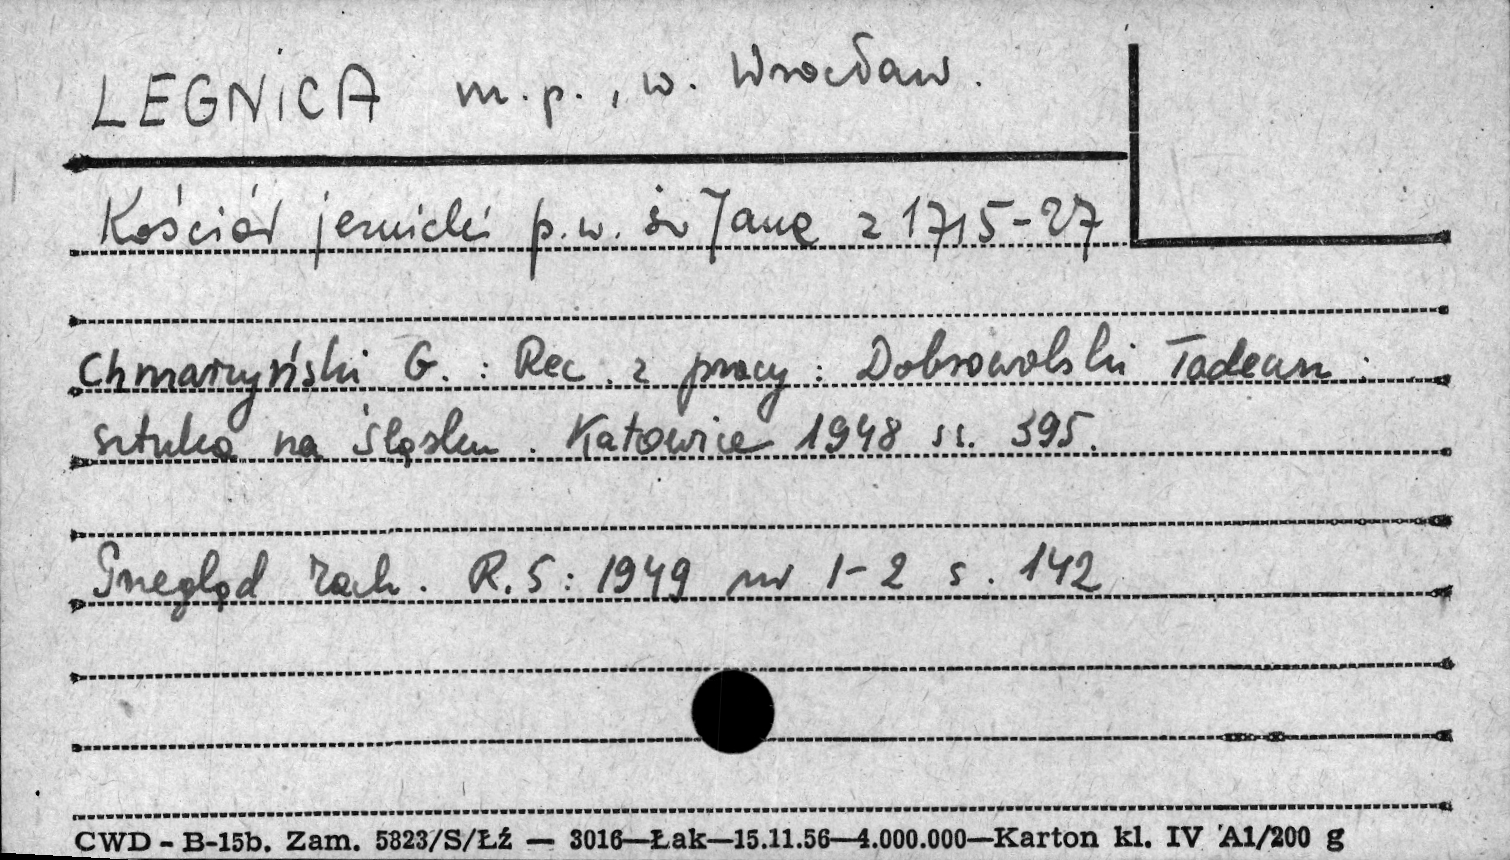 LEGNICA m.p., w. Wrocław.
Kościół jezuicki p.w. św Jana z 1715-27
Chmarzyński G. : Rec. z pracy : Dobrowolski Tadeusz :
Sztuka na Śląsku. Katowice 1948 ss. 395.
Przegląd Zach. R. 5: 1949 nr 1-2 s. 142
CWD - B-15b. Zam. 5823/S/Łź — 3016—Łak—15.11.56—4.000.000—Karton kl. IV A1/200 g